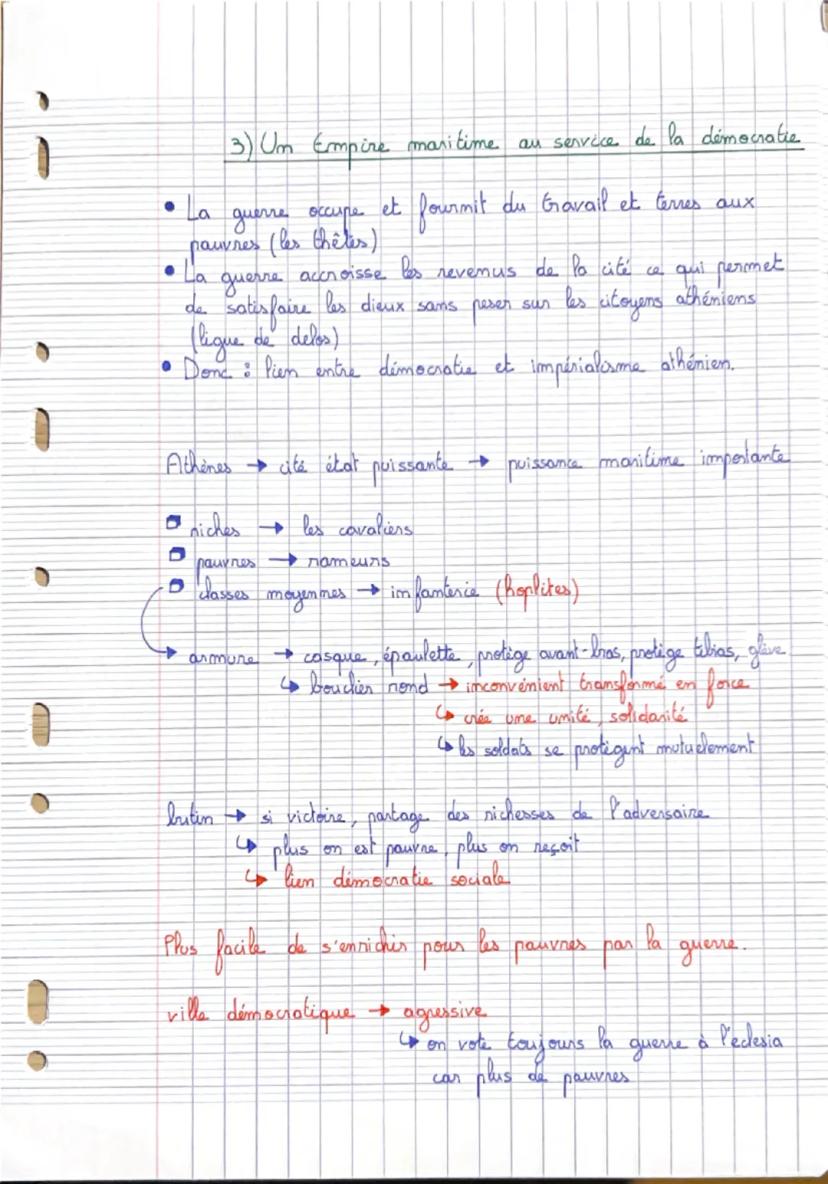 3) Un Empire maritime au service de la démocratie
• La guerre occupe et fournit du travail et terres aux
pauvres (les thètes)
• La guerre accroisse les revenus de la cité ce qui permet
de satisfaire les dieux sans peser sur les citoyens athéniens
(ligue de delos)
• Donc : lien entre démocratie et impérialisme athénien.
Athènes → cité état puissante → puissance maritime importante
riches → les cavaliers
pauvres → rameurs
classes moyennes → infanterie (hoplites)
armure → casque, épaulette, protège avant-bras, protège tibias, glève
↳ bouclier rond → inconvénient transformé en force
↳ crée une unité, solidarité
↳ les soldats se protègent mutuelement
butin → si victoire, partage des richesses de l'adversaire
↳ plus on est pauvre, plus on reçoit
↳ lien démocratie sociale
Plus facile de s'enrichir pour les pauvres par la guerre.
ville démocratique → agressive
↳ on vote toujours la guerre à l'eclesia
car plus de pauvres